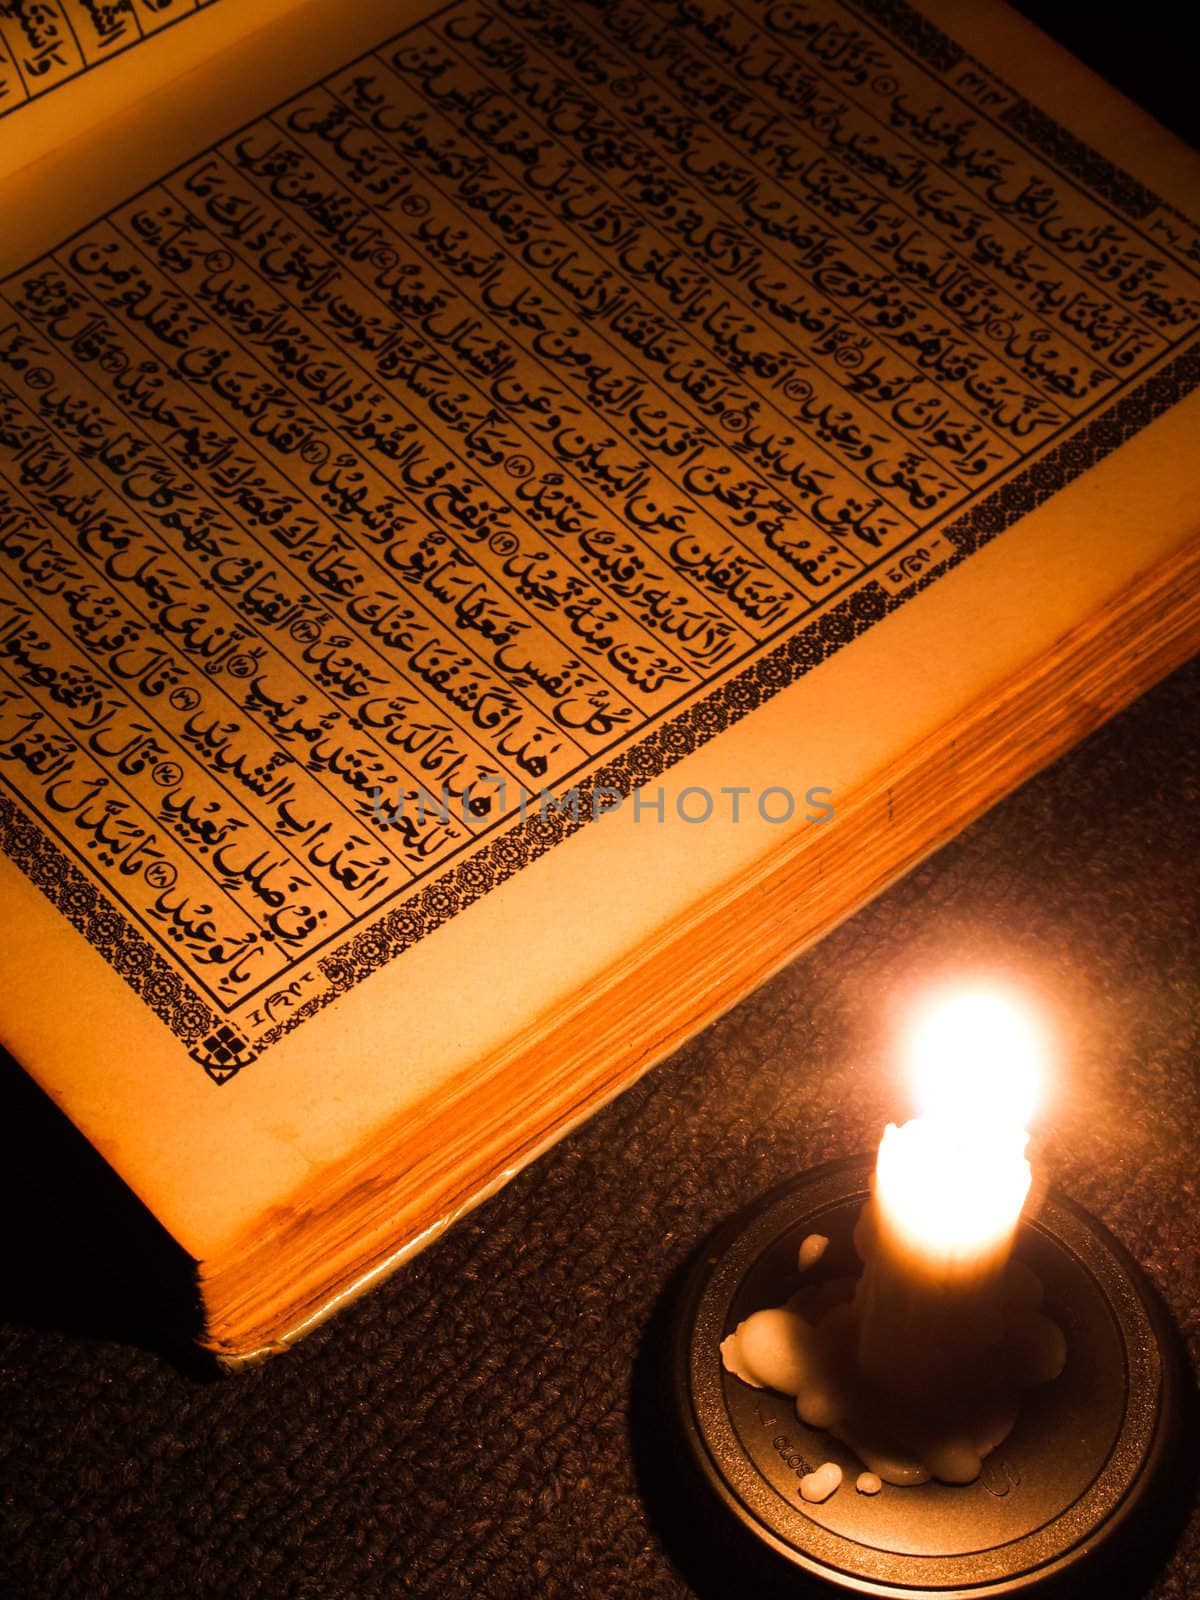 تَبْصِرَةً وَّذِكْرٰى لِكُلِّ عَبْدٍ مُّنِيْبٍ ۝٨ وَنَزَّلْنَا مِنَ
فَاَنْۢبَتْنَا بِهٖ جَنّٰتٍ وَّحَبَّ الْحَصِيْدِ ۝٩ وَالنَّخْلَ بٰسِقٰتٍ
نَّضِيْدٌ ۝١٠ رِّزْقًا لِّلْعِبَادِ وَاَحْيَيْنَا بِهٖ بَلْدَةً مَّيْتًا كَذٰلِكَ
كَذَّبَتْ قَبْلَهُمْ قَوْمُ نُوْحٍ وَّاَصْحٰبُ الرَّسِّ وَثَمُوْدُ ۝١٢ وَعَادٌ وَّفِرْعَوْنُ
وَاِخْوَانُ لُوْطٍ ۝١٣ وَّاَصْحٰبُ الْاَيْكَةِ وَقَوْمُ تُبَّعٍ كُلٌّ كَذَّبَ الرُّسُلَ
فَحَقَّ وَعِيْدِ ۝١٤ اَفَعَيِيْنَا بِالْخَلْقِ الْاَوَّلِ بَلْ هُمْ فِيْ لَبْسٍ مِّنْ
خَلْقٍ جَدِيْدٍ ۝١٥ وَلَقَدْ خَلَقْنَا الْاِنْسَانَ وَنَعْلَمُ مَا تُوَسْوِسُ بِهٖ
نَفْسُهٗ وَنَحْنُ اَقْرَبُ اِلَيْهِ مِنْ حَبْلِ الْوَرِيْدِ ۝١٦ اِذْ يَتَلَقَّى
الْمُتَلَقِّيٰنِ عَنِ الْيَمِيْنِ وَعَنِ الشِّمَالِ قَعِيْدٌ ۝١٧ مَا يَلْفِظُ مِنْ قَوْلٍ
اِلَّا لَدَيْهِ رَقِيْبٌ عَتِيْدٌ ۝١٨ وَجَآءَتْ سَكْرَةُ الْمَوْتِ بِالْحَقِّ ذٰلِكَ مَا
كُنْتَ مِنْهُ تَحِيْدُ ۝١٩ وَنُفِخَ فِى الصُّوْرِ ذٰلِكَ يَوْمُ الْوَعِيْدِ ۝٢٠ وَجَآءَتْ
كُلُّ نَفْسٍ مَّعَهَا سَآئِقٌ وَّشَهِيْدٌ ۝٢١ لَقَدْ كُنْتَ فِيْ غَفْلَةٍ مِّنْ
هٰذَا فَكَشَفْنَا عَنْكَ غِطَآءَكَ فَبَصَرُكَ الْيَوْمَ حَدِيْدٌ ۝٢٢ وَقَالَ قَرِيْنُهٗ
هٰذَا مَا لَدَيَّ عَتِيْدٌ ۝٢٣ اَلْقِيَا فِيْ جَهَنَّمَ كُلَّ كَفَّارٍ عَنِيْدٍ ۝٢٤
لِّلْخَيْرِ مُعْتَدٍ مُّرِيْبِ ۝٢٥ الَّذِيْ جَعَلَ مَعَ اللّٰهِ اِلٰهًا
الْعَذَابِ الشَّدِيْدِ ۝٢٦ قَالَ قَرِيْنُهٗ رَبَّنَا مَآ
فِيْ ضَلٰلٍۢ بَعِيْدٍ ۝٢٧ قَالَ لَا تَخْتَصِمُوْا
بِالْوَعِيْدِ ۝٢٨ مَا يُبَدَّلُ الْقَوْلُ
UNLIMPHOTOS